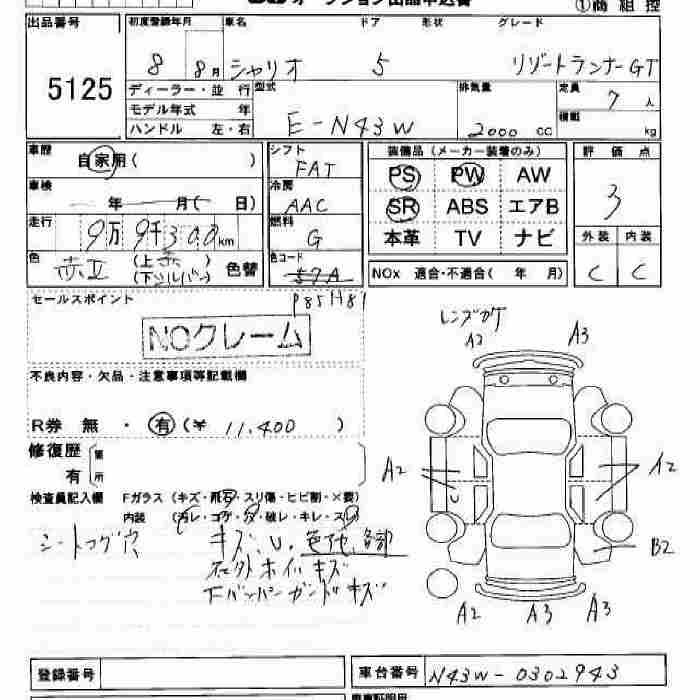 オークション出品申込書 ①商組控
出品番号 初度登録年月 車名 ドア 形状 グレード
5125 8 8月 シャリオ 5 リゾートランナーGT
ディーラー・並行 型式 排気量 定員 7人
モデル年式 年 E-N43W 2000cc 積載 kg
ハンドル 左・右
車歴 自家用( ) シフト FAT 装備品(メーカー装着のみ) 評価点
PS PW AW 3
車検 年 月( 日) 冷房 AAC SR ABS エアB
走行 9万9千300km 燃料 G 本革 TV ナビ 外装 内装
色 赤II (上赤 下シルバー) 色替 色コード 57A NOx 適合・不適合( 年 月) C C
P85H81
セールスポイント
NOクレーム
レンズカケ
A2 A3
不良内容・欠品・注意事項等記載欄
R券 無・有(¥ 11,400 )
修復歴 有 箇所
A2 A2
検査員記入欄 Fガラス(キズ・飛石・スリ傷・ヒビ割・×要)
内装(汚レ・コゲ・穴・破レ・キレ・スレ)
シートコゲ穴 キズ、U、色化、各部
B2
右外ホイルキズ
下バンパーガードキズ
A2 A3 A3
登録番号 車台番号 N43W-0302943